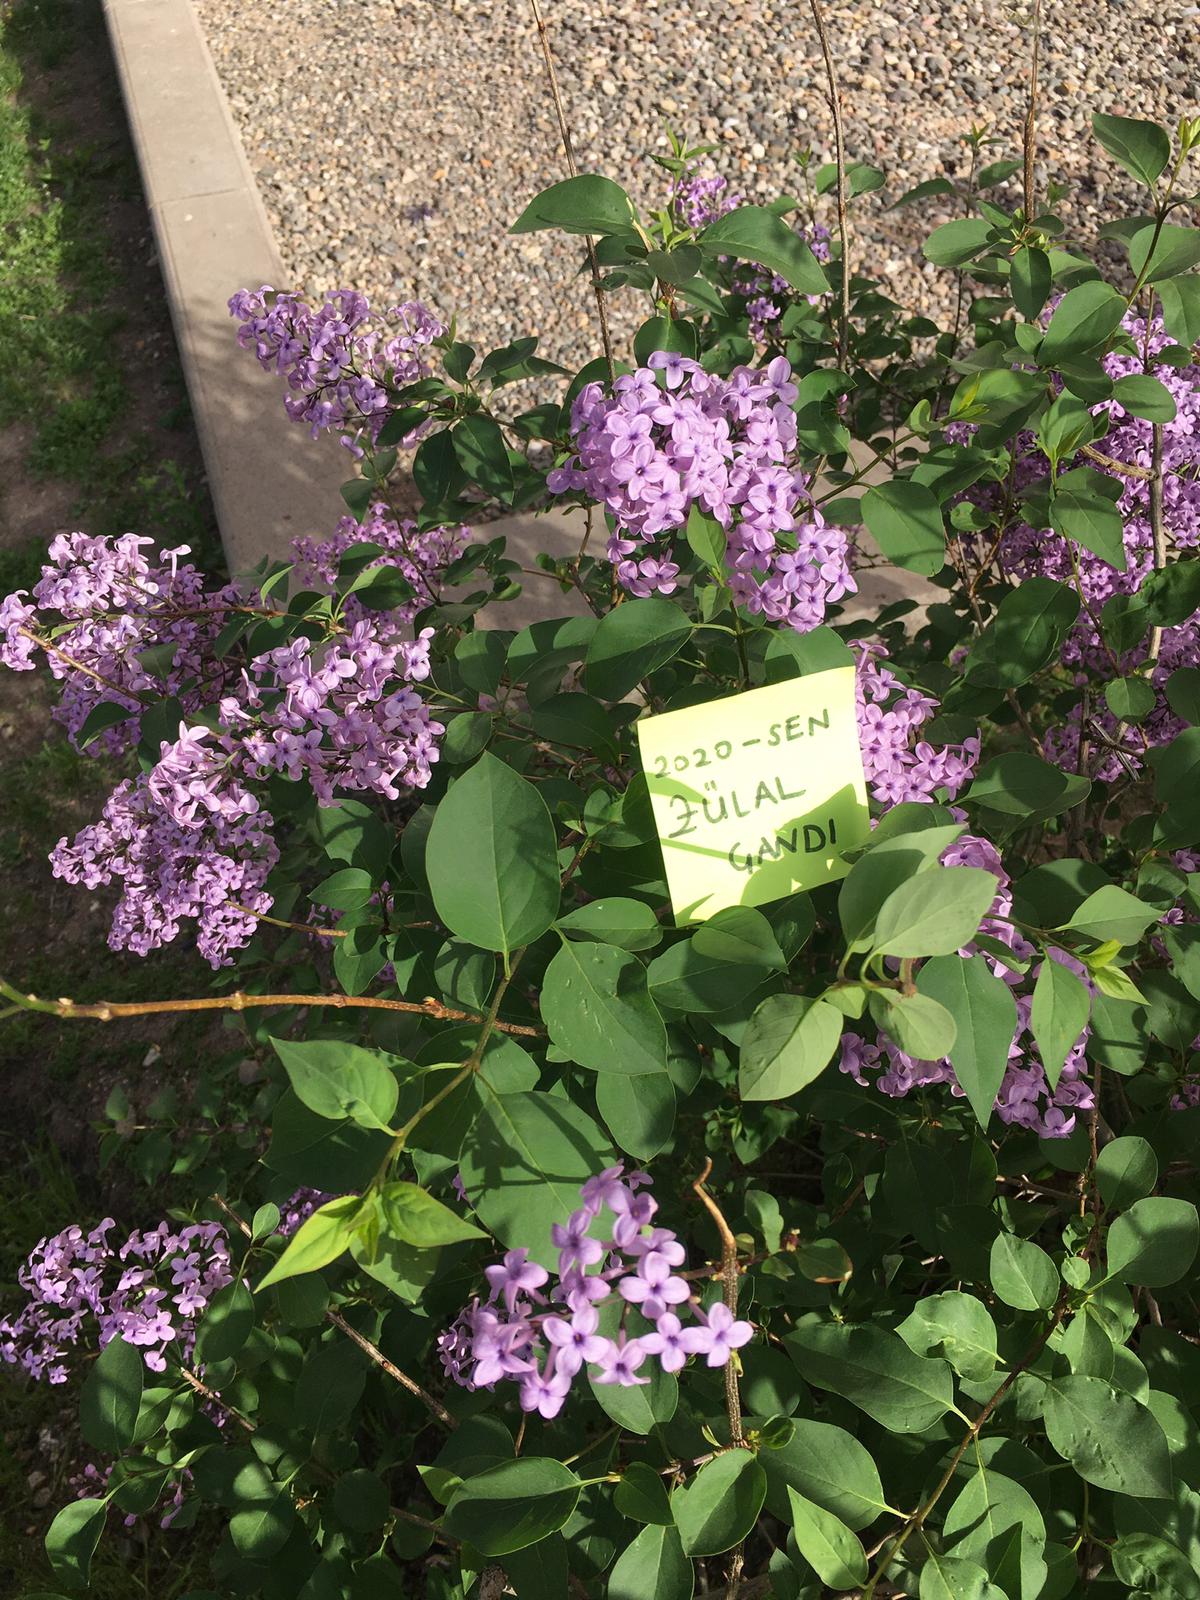 2020-SEN
ZÜLAL
GANDI